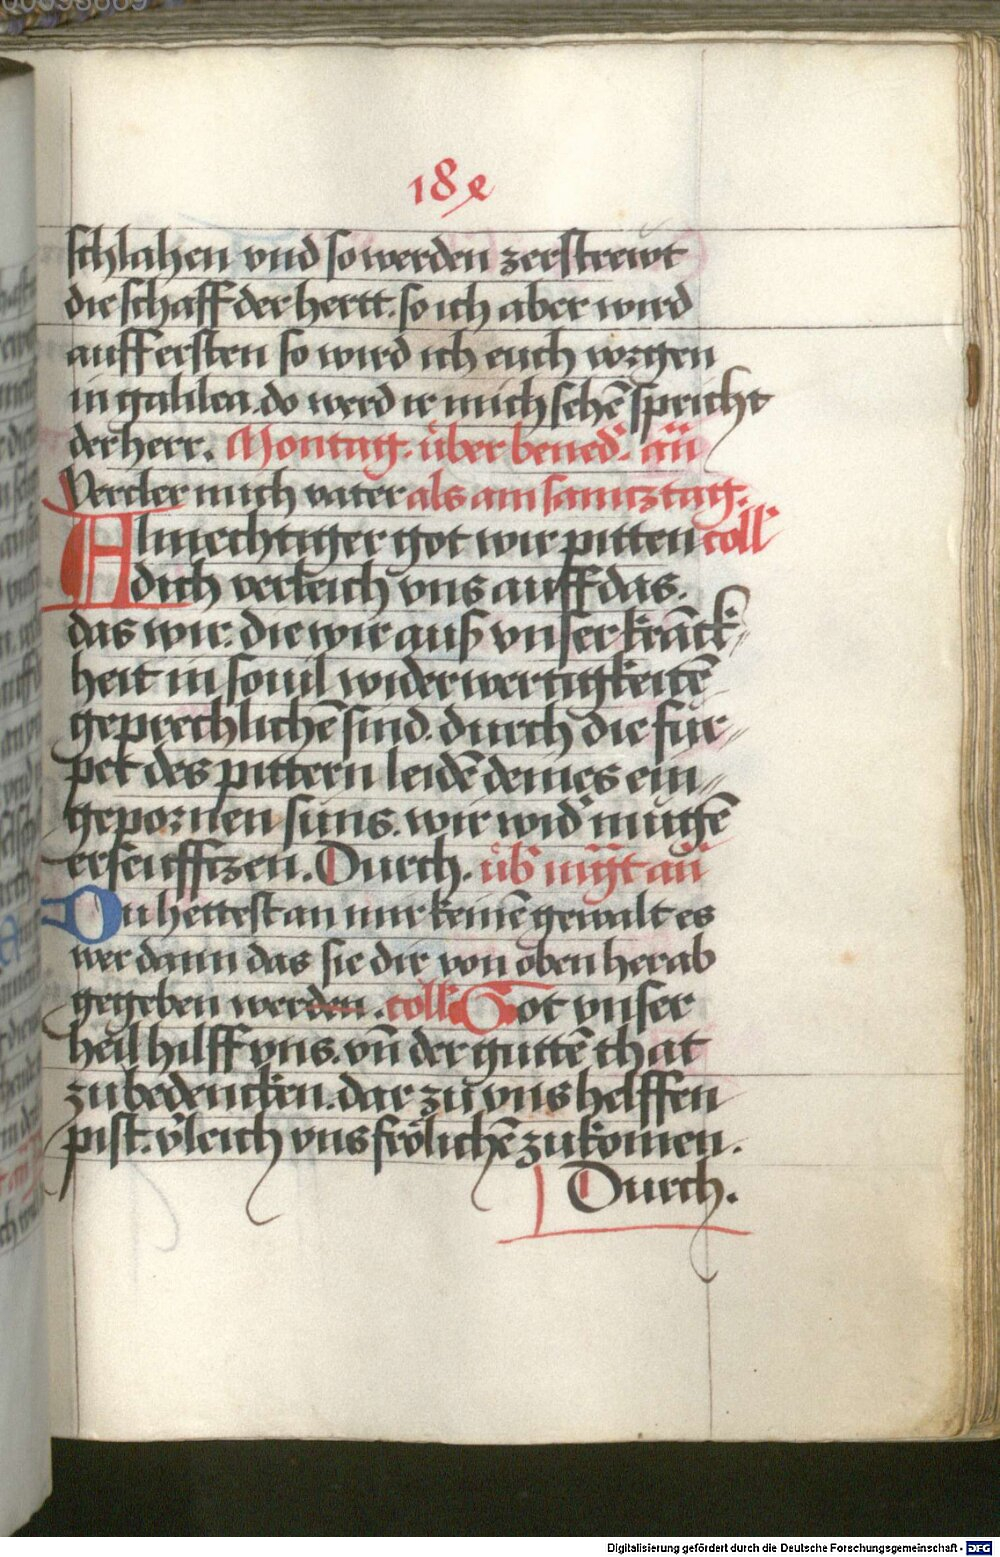 18 e
schlahen vnd so werden zerstrewt
die schaff der hertt. so ich aber wird
auff ersten so wird ich euch vorgen
in galilea. do werd ir mich sehē spricht
der herr. Montag. über bened. añ
Vercler mich vater als am samcztag.
Almechtiger got wir pitten coll
dich verleich vns auff das.
das wir. die wir auß vnser krāck
heit in souil widerwertigkeitē
geprechlichē sind. durch die für
pet des pittern leidē deines ein
gepornen suns. wir wid mugē
erseufftzen. Durch. üb mgt añ
Du hettest an mir keinē gewalt es
wer dann das sie dir von oben herab
gegeben werden. coll Got vnser
heil hilff vns. vn̄ der guttē that
zu bedencken. dar zu vns helffen
pist. v'leich vns frölichē zu komen.
Durch.
Digitalisierung gefördert durch die Deutsche Forschungsgemeinschaft - DFG